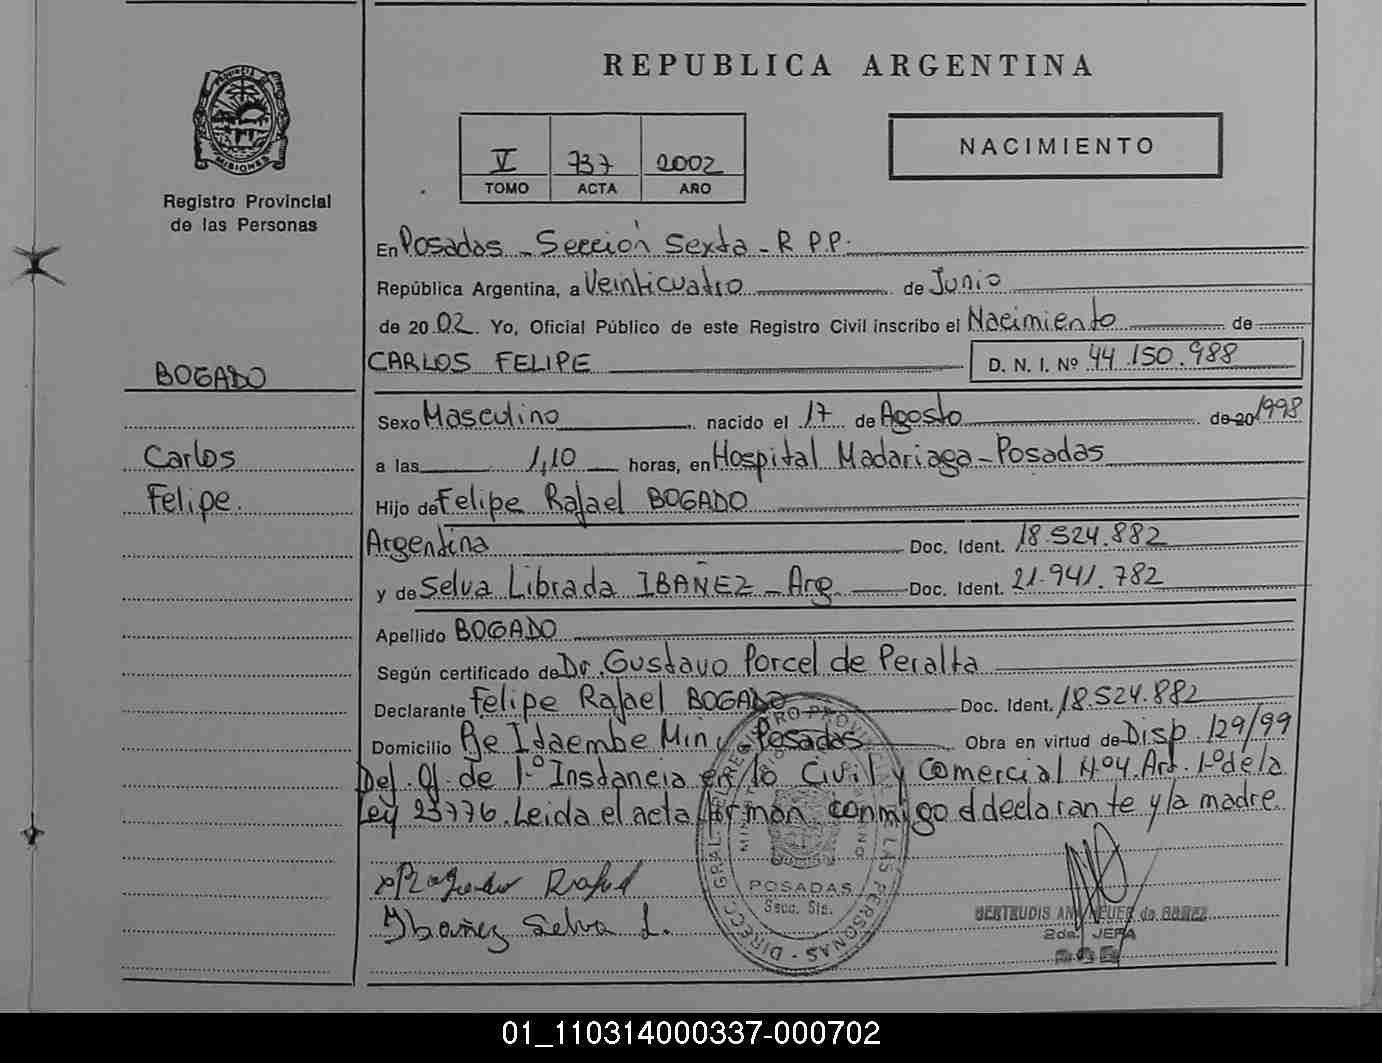 REPUBLICA ARGENTINA
MISIONES
Registro Provincial
de las Personas
V 737 2002
TOMO ACTA AÑO
NACIMIENTO
En Posadas - Sección Sexta - R.P.P.
República Argentina, a Veinticuatro de Junio
de 2002. Yo, Oficial Público de este Registro Civil inscribo el Nacimiento de
BOGADO
CARLOS FELIPE D. N. I. Nº 44.150.988
Sexo Masculino nacido el 17 de Agosto de 20 1998
Carlos
a las 1,10 horas, en Hospital Madariaga - Posadas
Felipe.
Hijo de Felipe Rafael BOGADO
Argentina Doc. Ident. 18.524.882
y de Selva Librada IBAÑEZ - Arg. Doc. Ident. 21.941.782
Apellido BOGADO
Según certificado de Dr. Gustavo Porcel de Peralta
Declarante Felipe Rafael BOGADO Doc. Ident. 18.524.882
Domicilio Itaembe Mini - Posadas Obra en virtud de Disp. 129/99
Def. Of. de 1º Instancia en lo Civil y Comercial Nº4. Art. 1º de la
Ley 25776. Leida el acta firman conmigo el declarante y la madre.
Rafael
Ibañez Selva L.
POSADAS
Secc. 6ta.
GERTRUDIS de
2da. JEFA
01_110314000337-000702